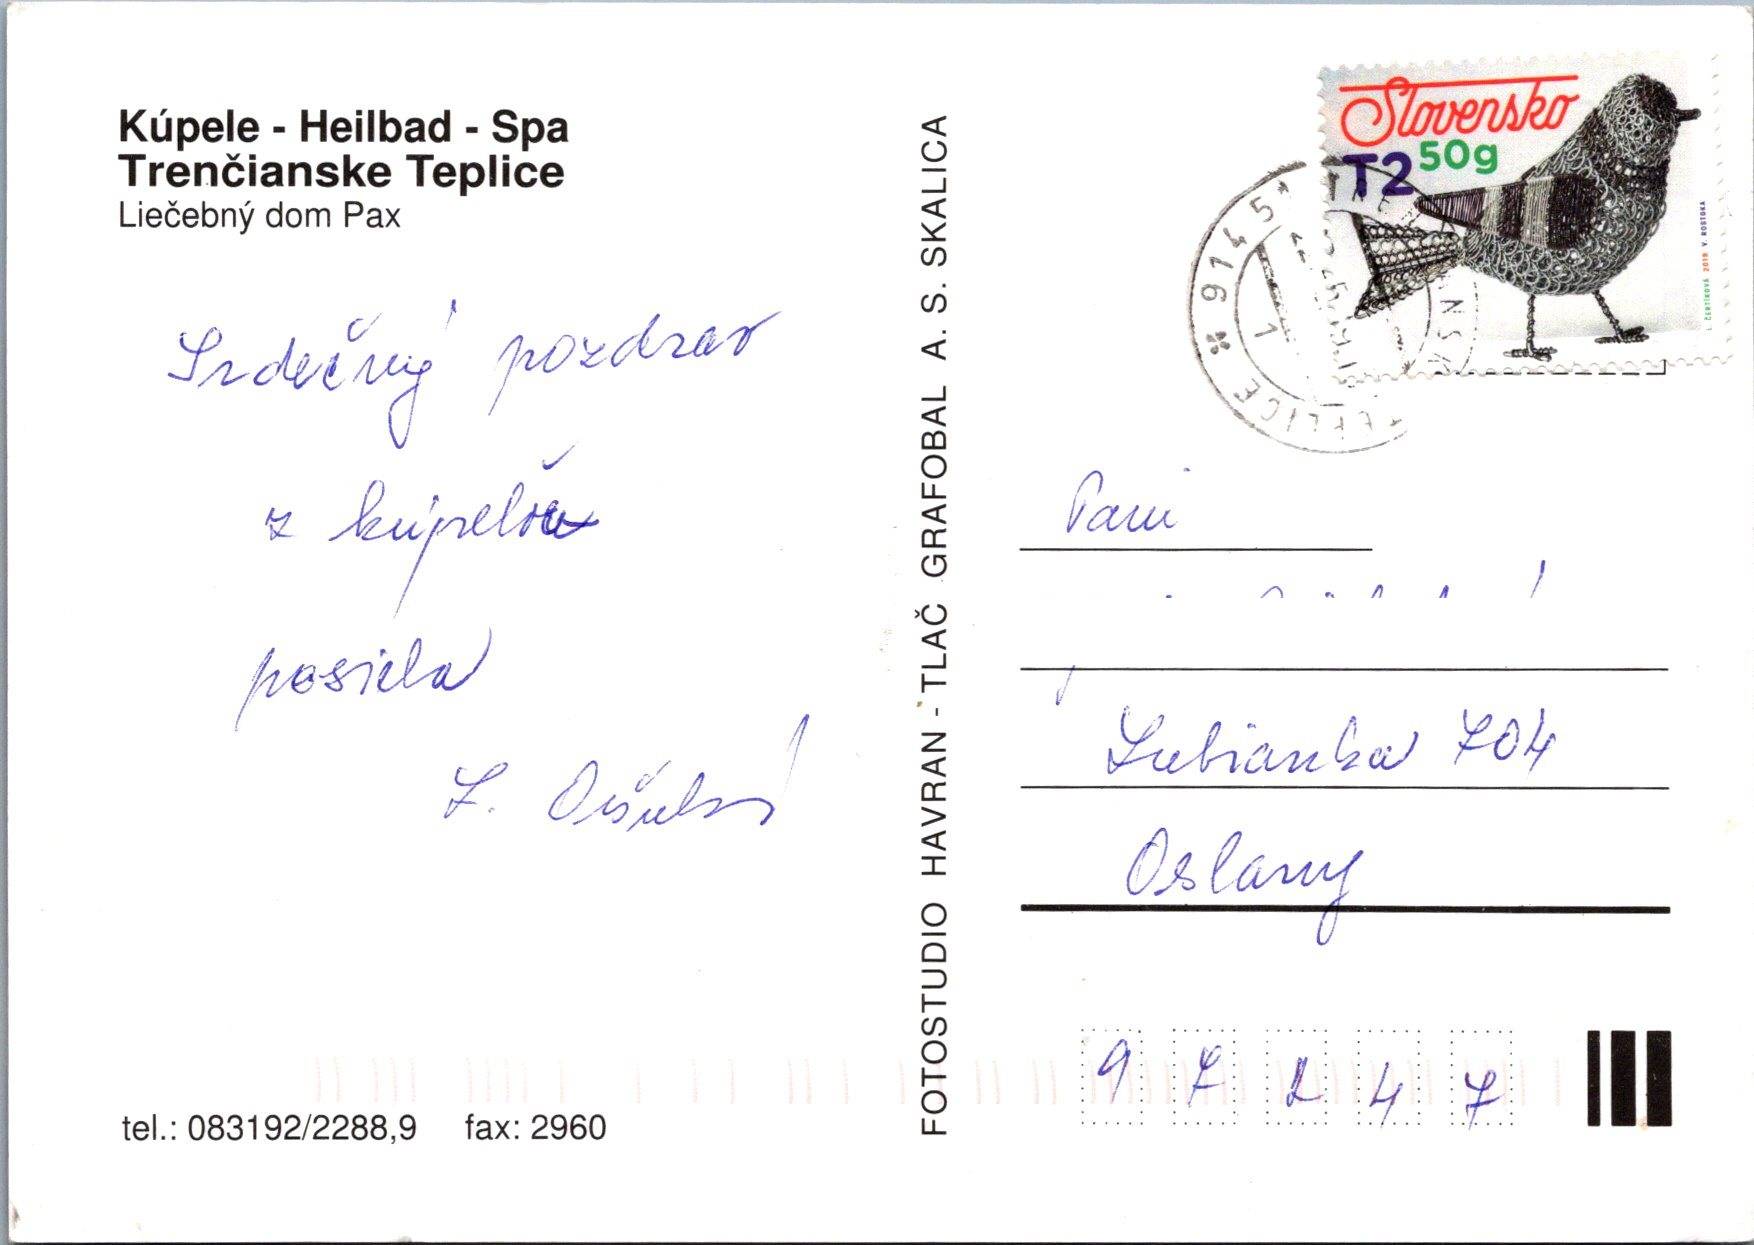 Kúpele - Heilbad - Spa
Trenčianske Teplice
Liečebný dom Pax
Srdečný pozdrav
z kúpeľov
posiela
L.
tel.: 083192/2288,9 fax: 2960
FOTOSTUDIO HAVRAN - TLAČ GRAFOBAL A. S. SKALICA
Slovensko
T2 50g
Ľ. ČERTÍKOVÁ 2019 V. ROSTOKA
914 51
TEPLICE
1
Pani
Lubianka 704
Oslany
97247